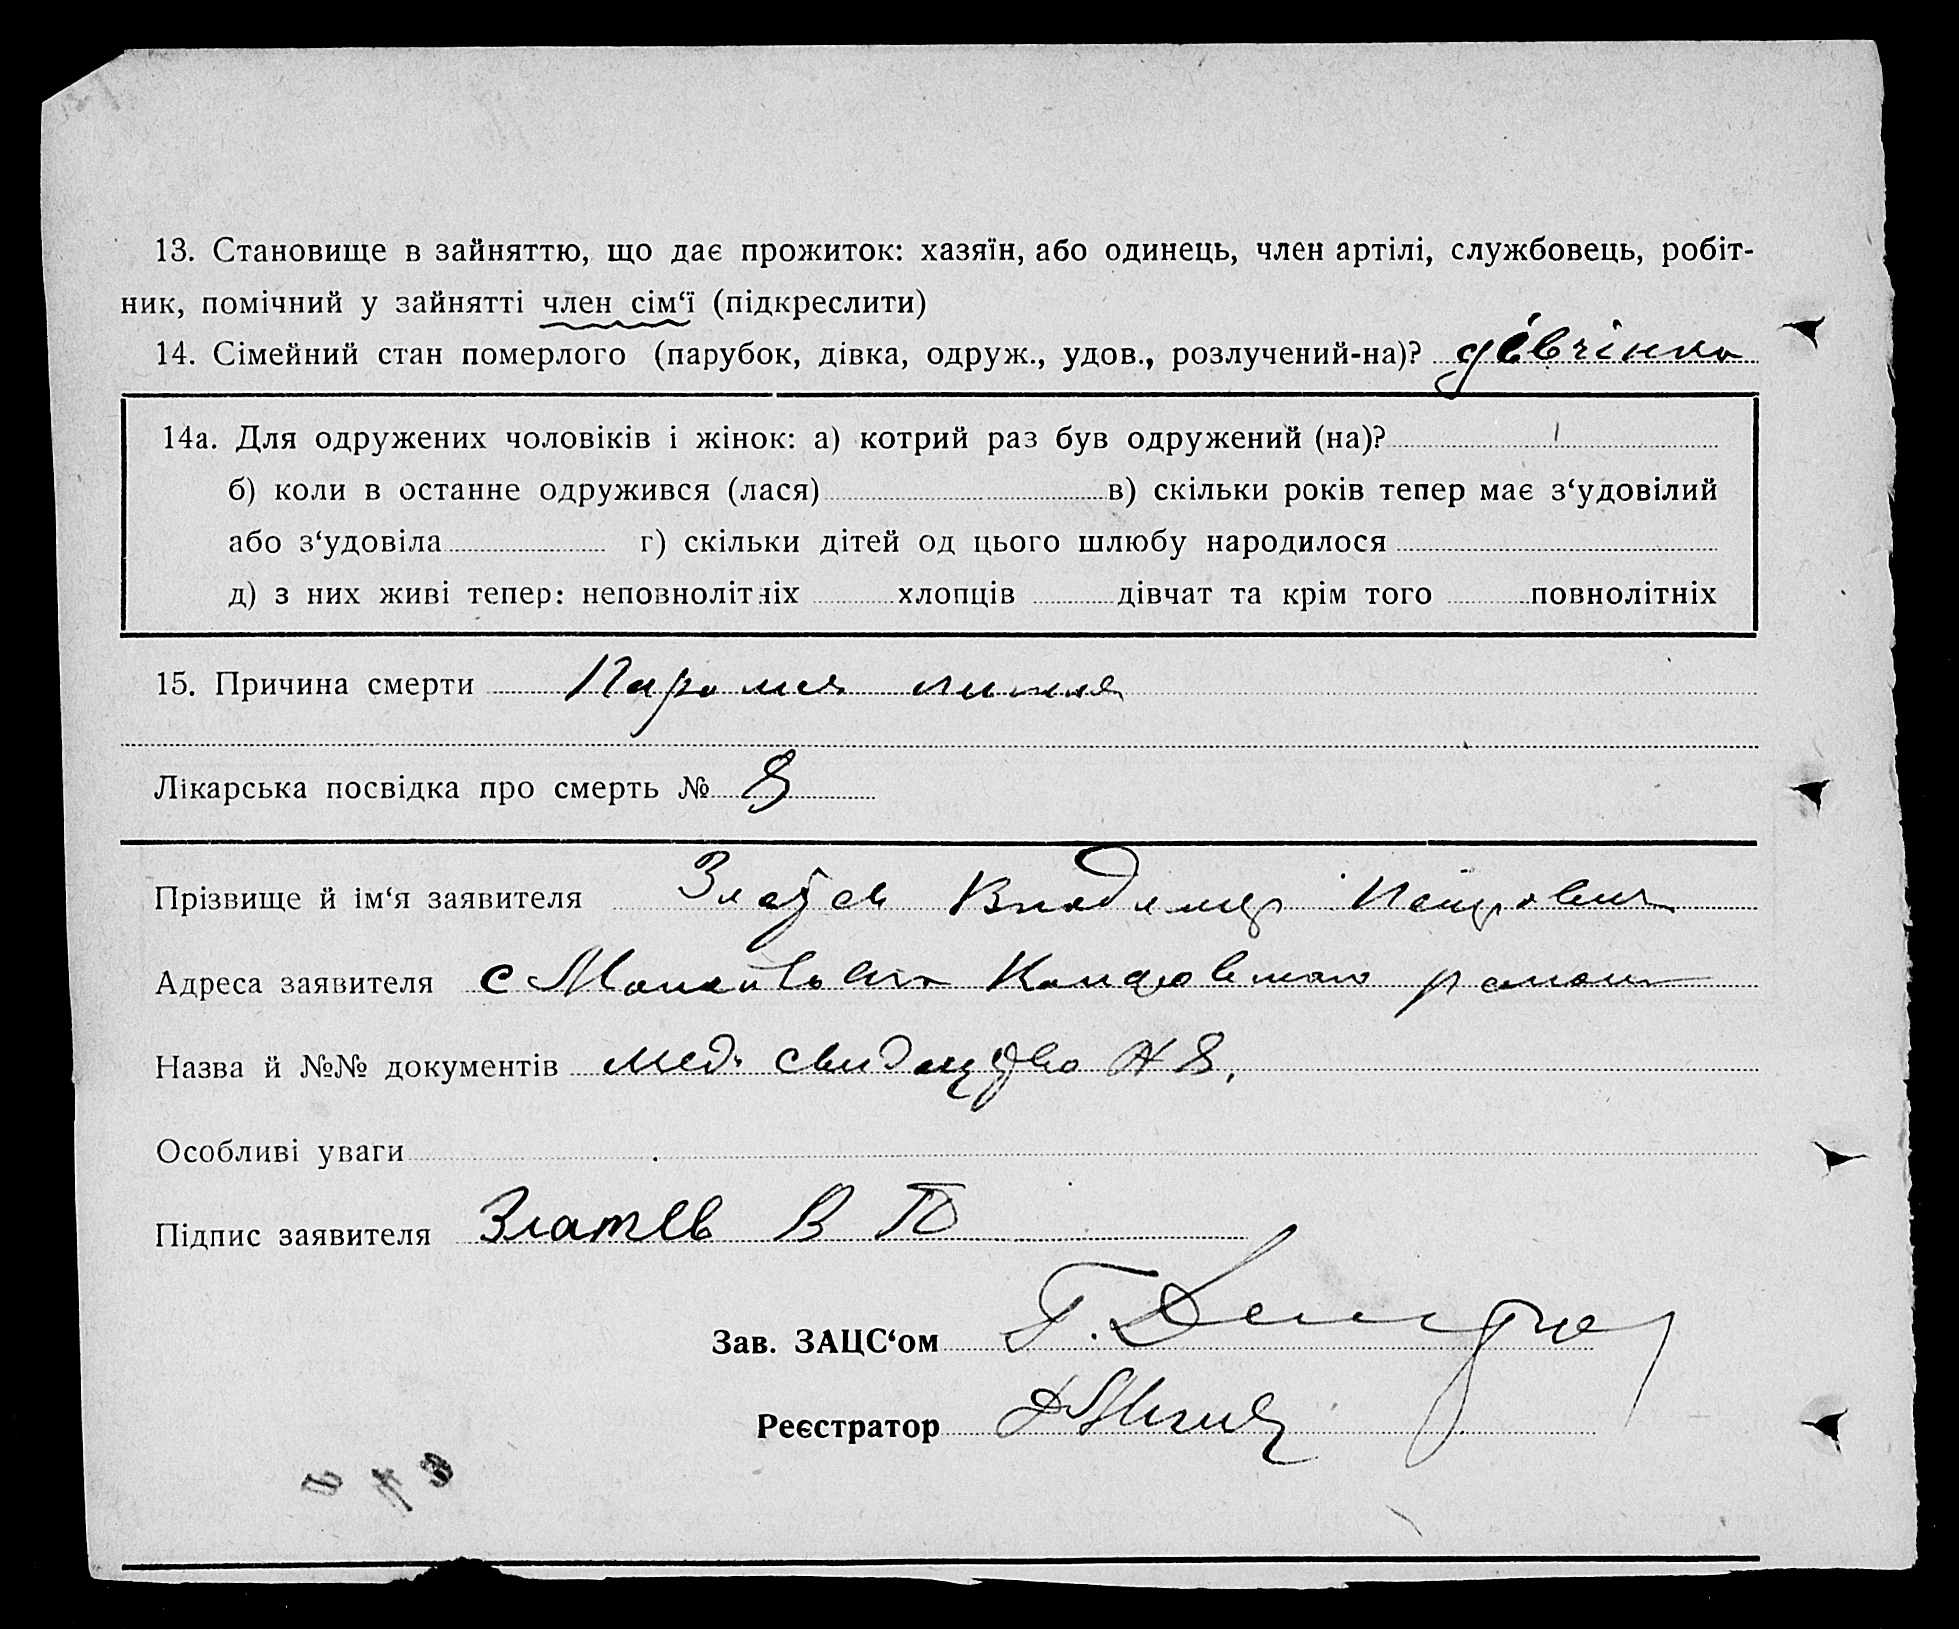 13. Становище в зайняттю, що дає прожиток: хазяїн, або одинець, член артілі, службовець, робіт-
ник, помічний у зайнятті член сім‘ї (підкреслити)
14. Сімейний стан померлого (парубок, дівка, одруж., удов., розлучений-на)? дівчінка
14а. Для одружених чоловіків і жінок: а) котрий раз був одружений (на)?
б) коли в останне одружився (лася) в) скільки років тепер має з‘удовілий
або з‘удовіла г) скільки дітей од цього шлюбу народилося
д) з них живі тепер: неповнолітніх хлопців дівчат та крім того повнолітніх
15. Причина смерти
Лікарська посвідка про смерть № 8
Прізвище й ім‘я заявителя Златев Владимир Петрович
Адреса заявителя с района
Назва й №№ документів мед. свидецтво № 8.
Особливі уваги
Підпис заявителя Златев В П
Зав. ЗАЦС‘ом Г.
Реєстратор